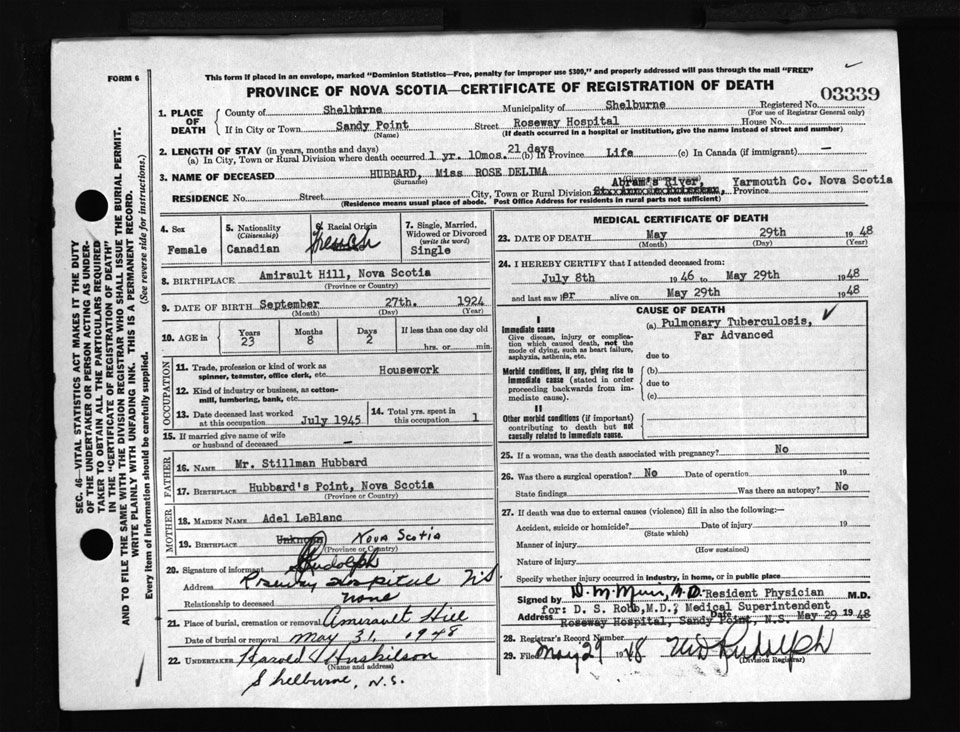 FORM 6
This form if placed in an envelope, marked "Dominion Statistics—Free, penalty for improper use $300," and properly addressed will pass through the mail "FREE"
PROVINCE OF NOVA SCOTIA—CERTIFICATE OF REGISTRATION OF DEATH
03339
1. PLACE OF DEATH
County of Shelburne Municipality of Shelburne Registered No.
(For use of Registrar General only)
If in City or Town Sandy Point Street Roseway Hospital House No.
(Name) (If death occurred in a hospital or institution, give the name instead of street and number)
2. LENGTH OF STAY (in years, months and days)
(a) In City, Town or Rural Division where death occurred 1 yr. 10mos. 21 days (b) In Province Life (c) In Canada (if immigrant) —
3. NAME OF DECEASED HUBBARD, Miss ROSE DELIMA
(Surname)
RESIDENCE No. Street City, Town or Rural Division Abram's River, Province Yarmouth Co. Nova Scotia
(Residence means usual place of abode. Post Office Address for residents in rural parts not sufficient)
4. Sex Female
5. Nationality (Citizenship) Canadian
6. Racial Origin French
7. Single, Married, Widowed or Divorced (write the word) Single
8. BIRTHPLACE Amirault Hill, Nova Scotia
(Province or Country)
9. DATE OF BIRTH September 27th. 1924
(Month) (Day) (Year)
10. AGE in Years 23 Months 8 Days 2 If less than one day old hrs. or min.
OCCUPATION
11. Trade, profession or kind of work as spinner, teamster, office clerk, etc. Housework
12. Kind of industry or business, as cotton-mill, lumbering, bank, etc.
13. Date deceased last worked at this occupation July 1945
14. Total yrs. spent in this occupation 1
15. If married give name of wife or husband of deceased —
FATHER
16. NAME Mr. Stillman Hubbard
17. BIRTHPLACE Hubbard's Point, Nova Scotia
(Province or Country)
MOTHER
18. MAIDEN NAME Adel LeBlanc
19. BIRTHPLACE Unknown Nova Scotia
(Province or Country)
20. Signature of informant Rudolph
Address Roseway Hospital N.S
Relationship to deceased none
21. Place of burial, cremation or removal Amirault Hill
Date of burial or removal May 31, 1948
22. UNDERTAKER Harold Huskilson
(Name and address)
Shelburne, N.S.
MEDICAL CERTIFICATE OF DEATH
23. DATE OF DEATH May 29th 1948
(Month) (Day) (Year)
24. I HEREBY CERTIFY that I attended deceased from:
July 8th 1946 to May 29th 1948
and last saw her alive on May 29th 1948
CAUSE OF DEATH
I
Immediate cause
Give disease, injury or complication which caused death, not the mode of dying, such as heart failure, asphyxia, asthenia, etc.
(a) Pulmonary Tuberculosis,
Far Advanced
due to
Morbid conditions, if any, giving rise to immediate cause (stated in order proceeding backwards from immediate cause).
(b)
due to
(c)
II
Other morbid conditions (if important) contributing to death but not causally related to immediate cause.
25. If a woman, was the death associated with pregnancy? No
26. Was there a surgical operation? No Date of operation 19
State findings Was there an autopsy? No
27. If death was due to external causes (violence) fill in also the following:—
Accident, suicide or homicide? Date of injury 19
(State which)
Manner of injury
(How sustained)
Nature of injury
Specify whether injury occurred in industry, in home, or in public place
Signed by D. M. Muir, M.D. Resident Physician M.D.
for: D. S. Robb, M.D., Medical Superintendent
Roseway Hospital, Sandy Point, N.S. Date May 29 1948
28. Registrar's Record Number
29. Filed May 29 1948 Rudolph
(Division Registrar)
SEC. 46—VITAL STATISTICS ACT MAKES IT THE DUTY
OF THE UNDERTAKER OR PERSON ACTING AS UNDER-
TAKER TO OBTAIN ALL THE PARTICULARS REQUIRED
IN THE "CERTIFICATE OF REGISTRATION OF DEATH"
AND TO FILE THE SAME WITH THE DIVISION REGISTRAR WHO SHALL ISSUE THE BURIAL PERMIT.
WRITE PLAINLY WITH UNFADING INK. THIS IS A PERMANENT RECORD.
Every item of information should be carefully supplied. (See reverse side for instructions.)